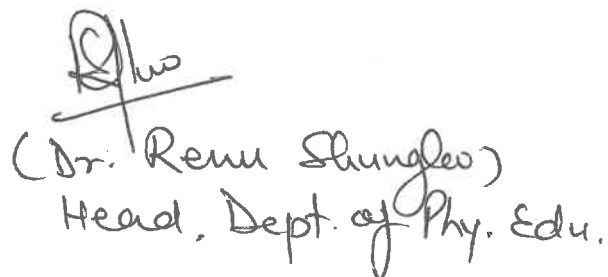 (Dr. Renu Shungleo)
Head, Dept. of Phy. Edu.